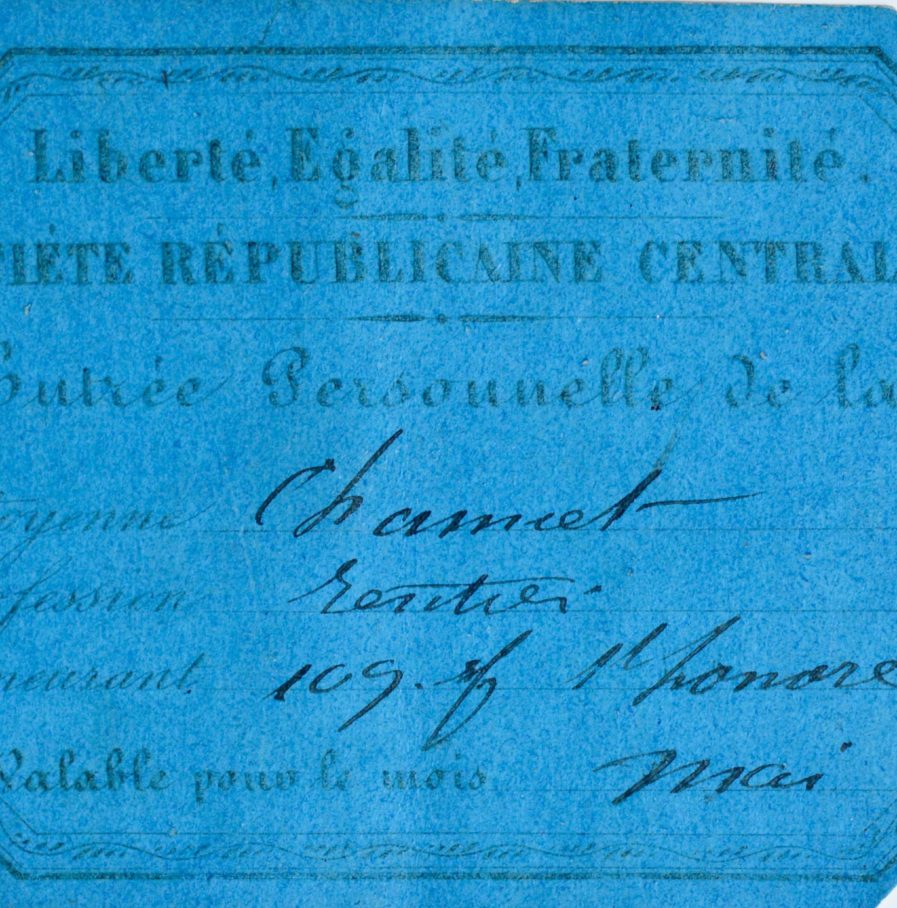 Liberté, Egalité, Fraternité.
IÉTE RÉPUBLICAINE CENTRAL
Entrée Personnelle de la
oyenne Chamet
fession Rentier
meurant 109. f St honoré
Valable pour le mois Mai